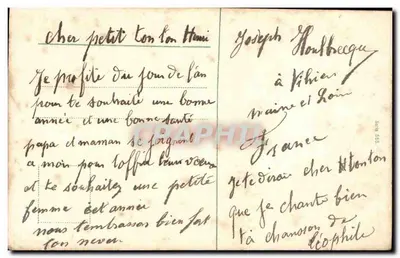 cher petit ton ton Henri
Je profite du jour de l'an
pour te souhaité une bonne
année et une bonne santé
papa et maman se joignent
a moi pour t'offrir leurs voeux
et te souhaitez une petite
femme cet année
nous t'embrassons bien fort
ton neveu
Joseph
à Vihiers
maine et Loire
France
je te dirai cher tonton
que je chante bien
ta chanson de
Léophile